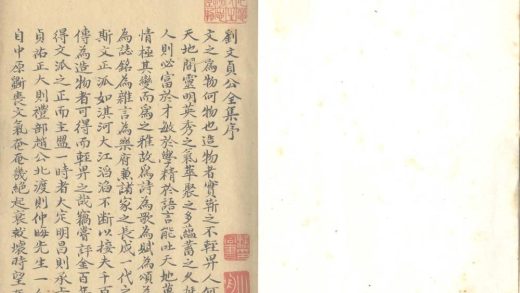 劉文貞公全集序
文之為物何物也造物者實靳之不輕畀人何
天地間靈明英秀之氣萃聚之多蘊蓄之久
人則必富於才敏於學精於語言能吐天地萬
情極其變而為之雅故為詩為歌為賦為頌為
為誌銘為雜言為樂府兼諸家之長成一代之
斯文正派如滇河大江滔滔不斷以接夫千百
傳為造物者可得而輕畀之哉竊嘗評金百年
得文派之正而主盟一時者大定明昌則承
貞祐正大則禮部趙公北渡則仲晦先生一
自中原斵喪文氣奄奄幾絕起衰救壞時望